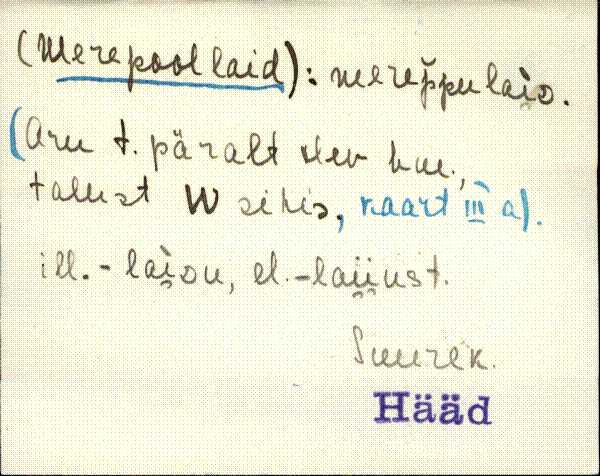 (Merepool laid): merep̆pu lai̯o.
(Aru t. päralt olev hm.,
talust W sihis, kaart III a).
ill. - lai̯ou, el. - lai̯i̯ust.
Suurek.
Hääd